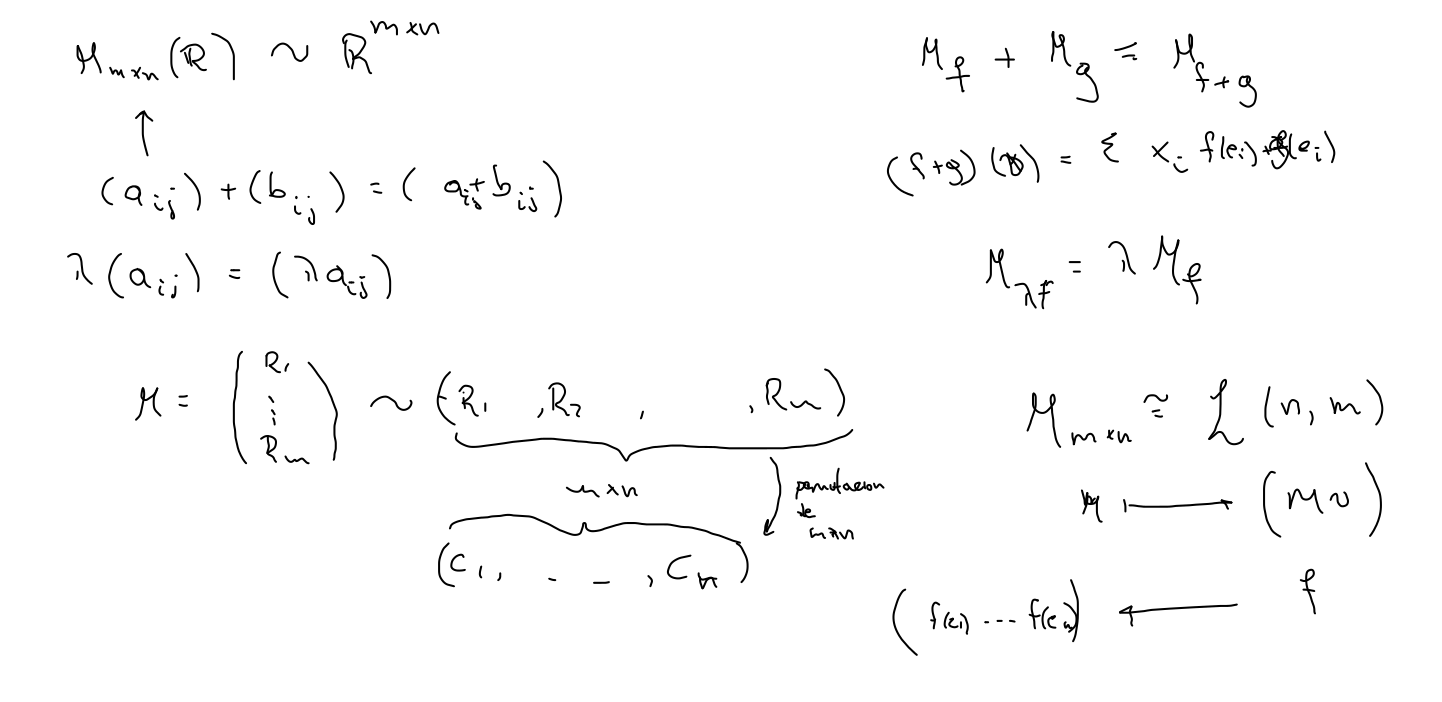 M_{m×n}(ℝ) ~ ℝ^{m×n}
↑
(a_{ij}) + (b_{ij}) = (a_{ij} + b_{ij})
λ(a_{ij}) = (λa_{ij})
M = (R_1 ⋮ R_m) ~ (R_1, R_2, , R_m)
m×n
permutacion
de
m×n
(C_1, . _ _, C_n)
M_f + M_g = M_{f+g}
(f+g)( ) = Σ x_i f(e_i)+g(e_i)
M_{λf} = λ M_f
M_{m×n} ≅ L(n, m)
M ↦ (Mv)
(f(e_1) ... f(e_n)) ← f